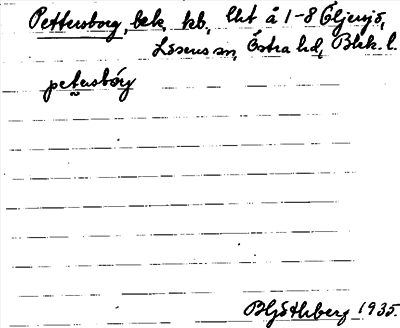 Pettersborg, bek. kb, lht å 1-8 Öljersjö,
Lösens sn, Östra hd, Blek. l.
petersbórg
B Hjöthberg 1935.